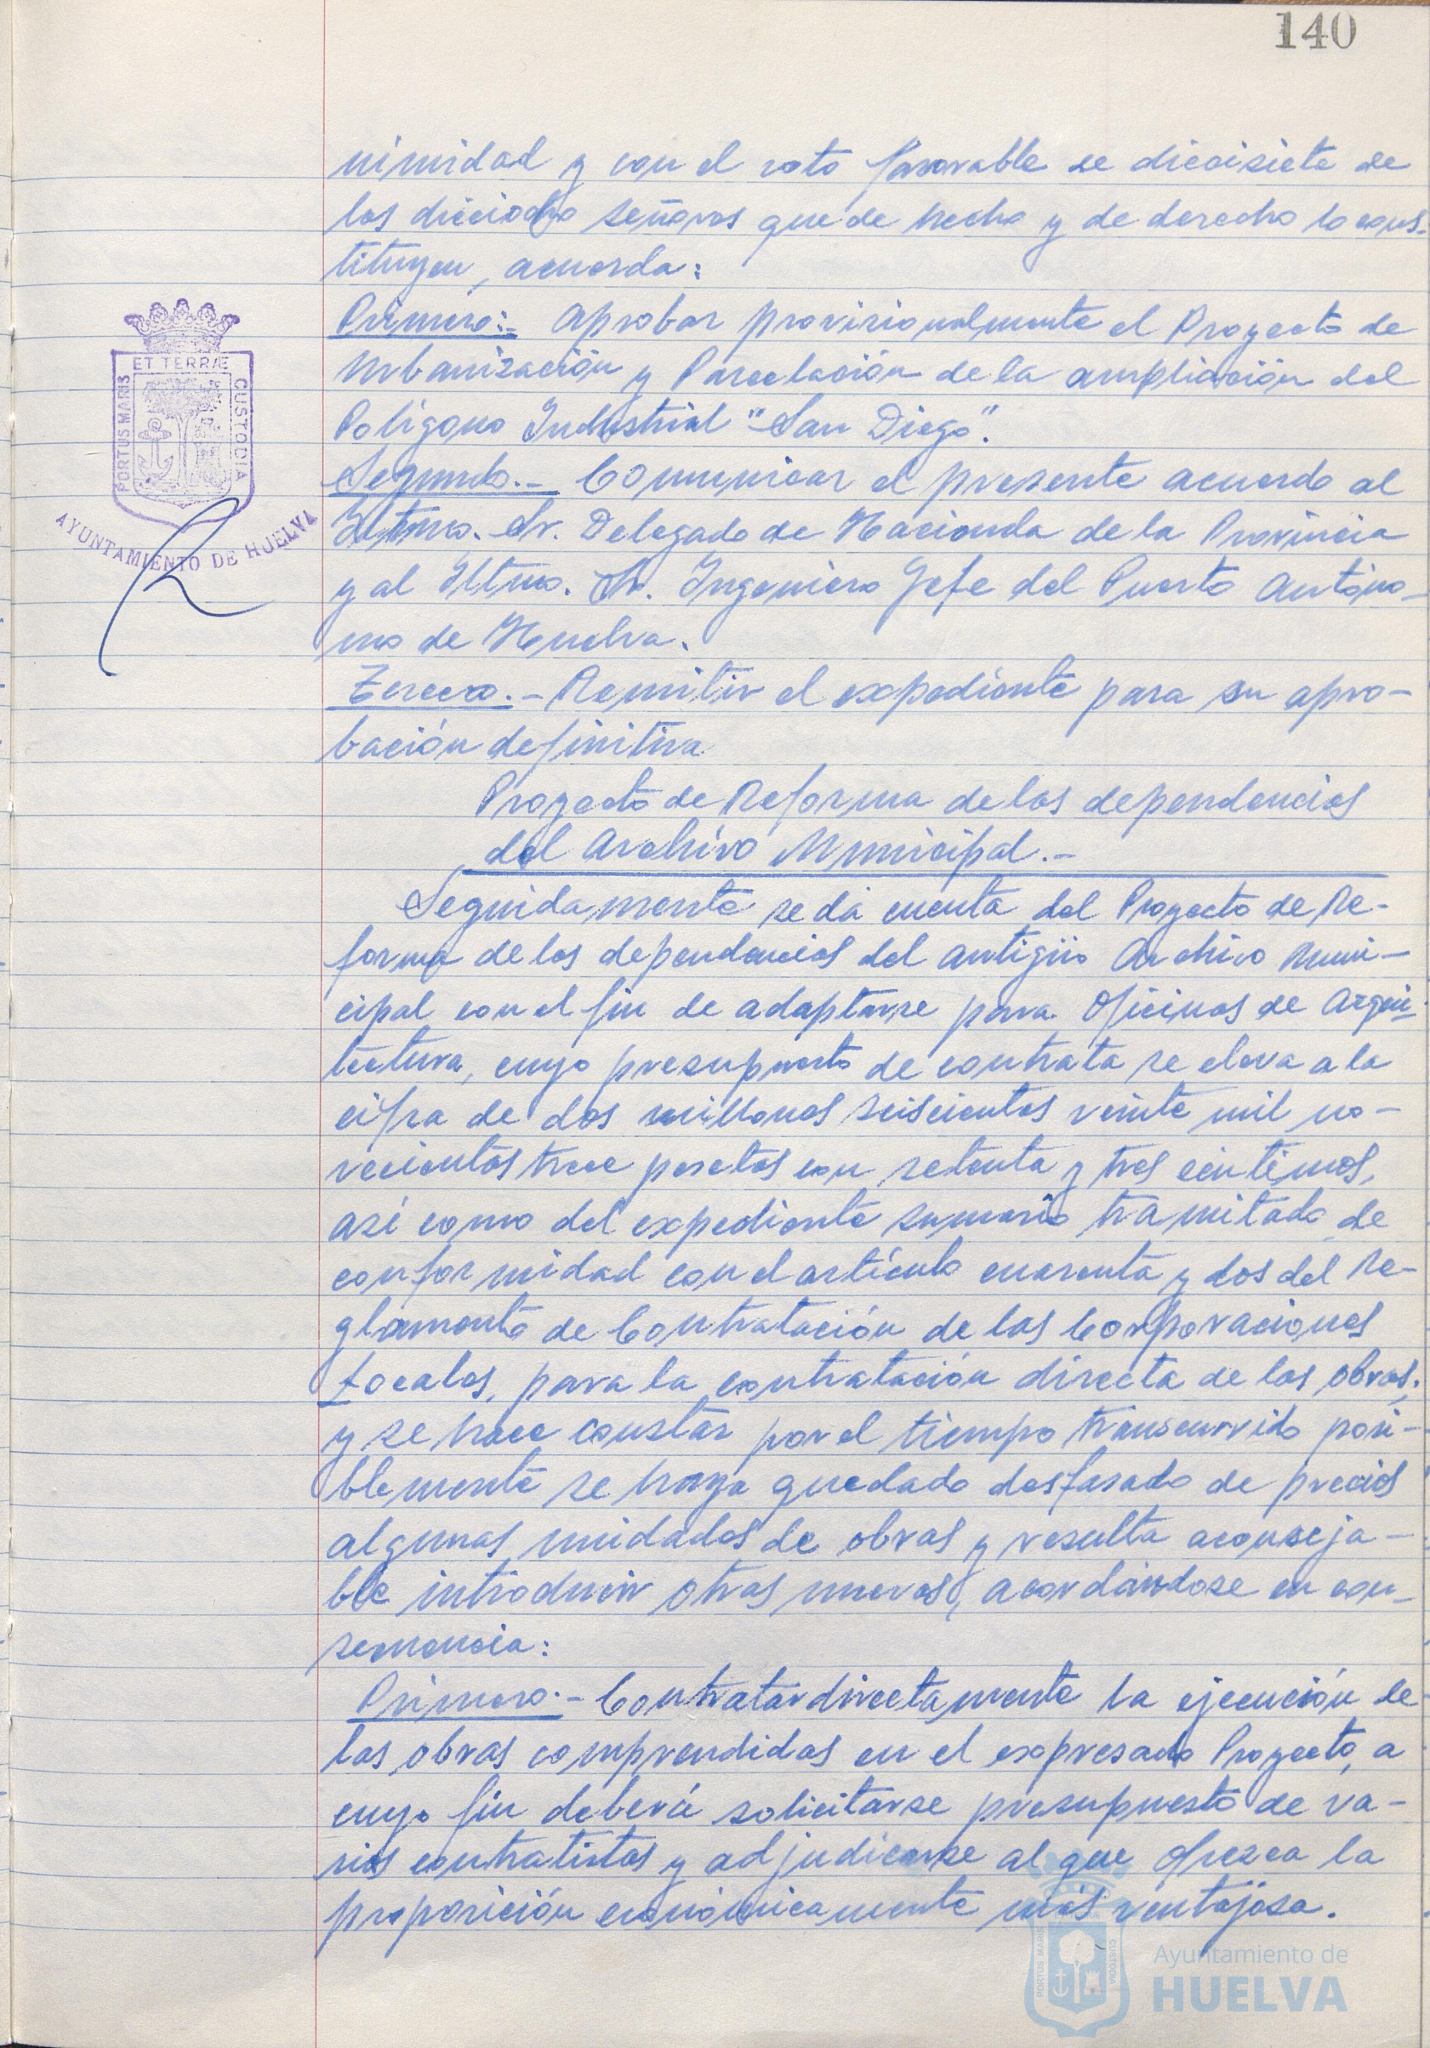 140
nimidad y con el voto favorable de diecisiete de
los dieciocho señores que de hecho y de derecho lo cons-
tituyen, acuerda:
Primero:- Aprobar provisionalmente el Proyecto de
Urbanización y Parcelación de la ampliación del
Polígono Industrial "San Diego".
Segundo.- Comunicar el presente acuerdo al
Iltmo. Sr. Delegado de Hacienda de la Provincia
y al Iltmo. Sr. Ingeniero Jefe del Puerto Autóno-
mo de Huelva.
Tercero.- Remitir el expediente para su apro-
bación definitiva.
Proyecto de Reforma de las dependencias
del Archivo Municipal.-
Seguidamente se dá cuenta del Proyecto de Re-
forma de las dependencias del antigüo Archivo Muni-
cipal con el fin de adaptarse para Oficinas de Arqui-
tectura, cuyo presupuesto de contrata se eleva a la
cifra de dos millones seiscientas veinte mil no-
vecientas trece pesetas con setenta y tres céntimos,
así como del expediente sumario tramitado de
conformidad con el artículo cuarenta y dos del Re-
glamento de Contratación de las Corporaciones
Locales, para la contratación directa de las obras,
y se hace constar por el tiempo transcurrido posi-
blemente se haya quedado desfasado de precios
algunas unidades de obras y resulta aconseja-
ble introducir otras nuevas, acordándose en con-
secuencia:
Primero.- Contratar directamente la ejecución de
las obras comprendidas en el expresado Proyecto, a
cuyo fin deberá solicitarse presupuesto de va-
rios contratistas y adjudicarse al que ofrezca la
proposición económicamente más ventajosa.
PORTUS MARIS
ET TERRÆ
CUSTODIA
AYUNTAMIENTO DE HUELVA
PORTUS MARIS
CUSTODIA
Ayuntamiento de
HUELVA